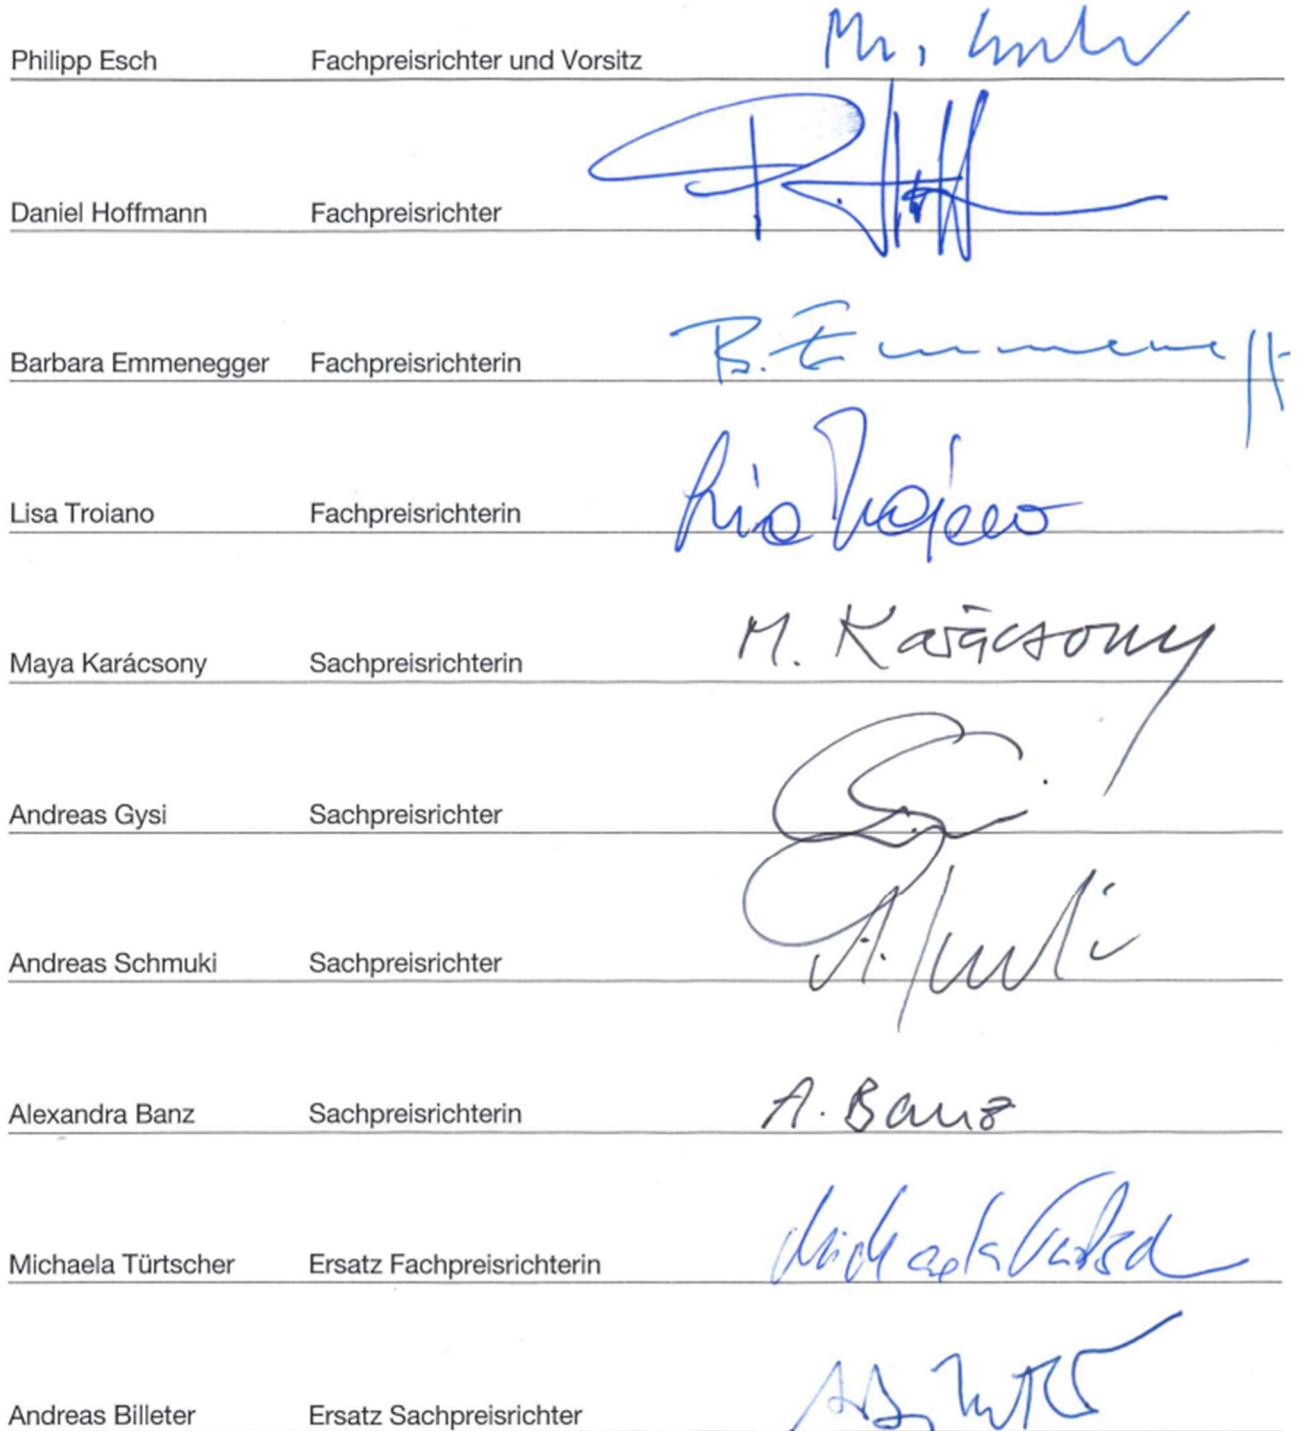 Philipp Esch Fachpreisrichter und Vorsitz
Daniel Hoffmann Fachpreisrichter
Barbara Emmenegger Fachpreisrichterin B. Emmenegg
Lisa Troiano Fachpreisrichterin
Maya Karácsony Sachpreisrichterin M. Karácsony
Andreas Gysi Sachpreisrichter
Andreas Schmuki Sachpreisrichter
Alexandra Banz Sachpreisrichterin A. Banz
Michaela Türtscher Ersatz Fachpreisrichterin Michaela
Andreas Billeter Ersatz Sachpreisrichter